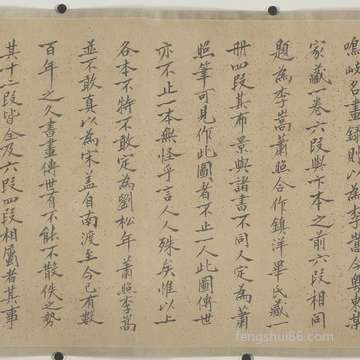 名畫錄則以為李嵩
家藏一卷六段與十本之前六段相同
題為李嵩蕭照合作鎮洋畢氏藏一
冊四段其布景與諸書不同又定為蕭
照筆可見作此圖者不止一人此圖傳世
亦不止一本無怪乎言人人殊矣惟以上
各本不特不敢定為劉松年蕭照李嵩
並不敢真以為宋蓋自南渡至今已有數
百年之久書畫傳世有不能不散佚之勢
其十二段皆全及六段四段相屬者其事
fengshui86.com